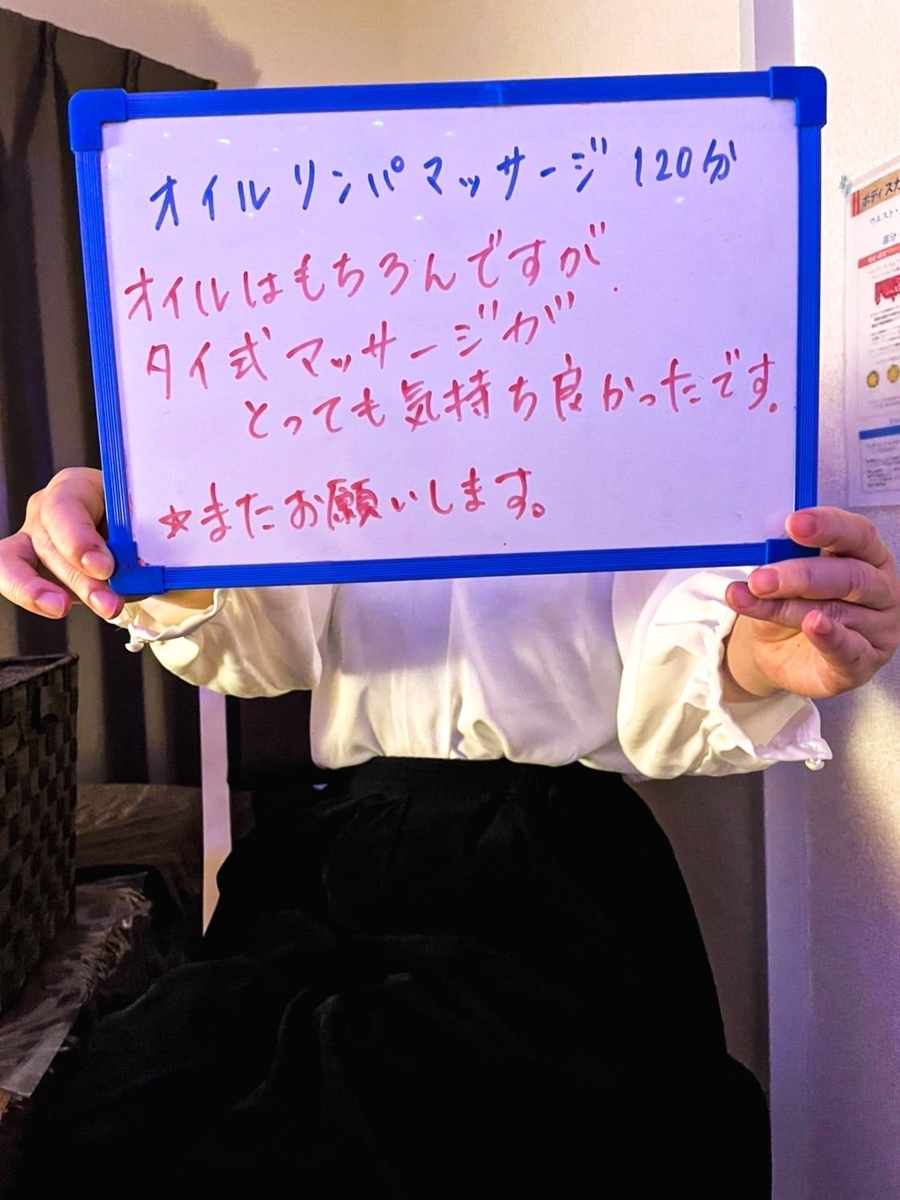 オイルリンパマッサージ 120分
オイルはもちろんですが
タイ式マッサージが
とっても気持ち良かったです。
☆またお願いします。
ボディスカ
ウエスト・
部分